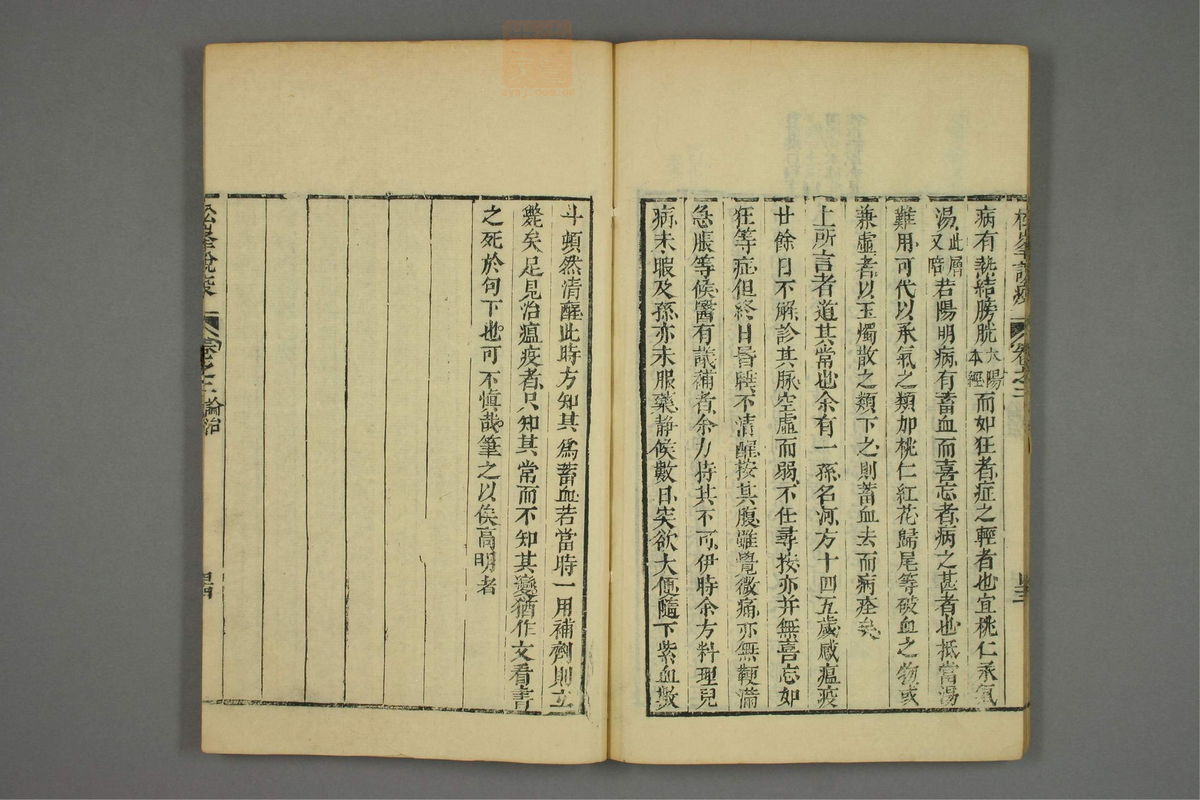 松峯說疫 卷之二
病有熱結膀胱太陽本經而如狂者症之輕者也宜桃仁承氣
湯此層又暗若陽明病有畜血而喜忘者病之甚者也抵當湯
難用可代以承氣之類加桃仁紅花歸尾等破血之物或
兼虛者以玉燭散之類下之則蓄血去而病痊矣
上所言者道其常也余有一孫名河方十四五歲感瘟疫
廿餘日不解診其脉空虛而弱不任尋按亦并無喜忘如
狂等症但終日昏睡不清醒按其腹雖覺微痛亦無鞕滿
急脹等候醫有議補者余力持其不可伊時余方料理兒
病未暇及孫亦未服藥靜候數日矣欲大便隨下紫血數
斗頓然清醒此時方知其爲蓄血若當時一用補劑則立
斃矣足見治瘟疫者只知其常而不知其變猶作文看書
之死於句下也可不慎哉筆之以俟高明者
松峯說疫 卷之二 論治